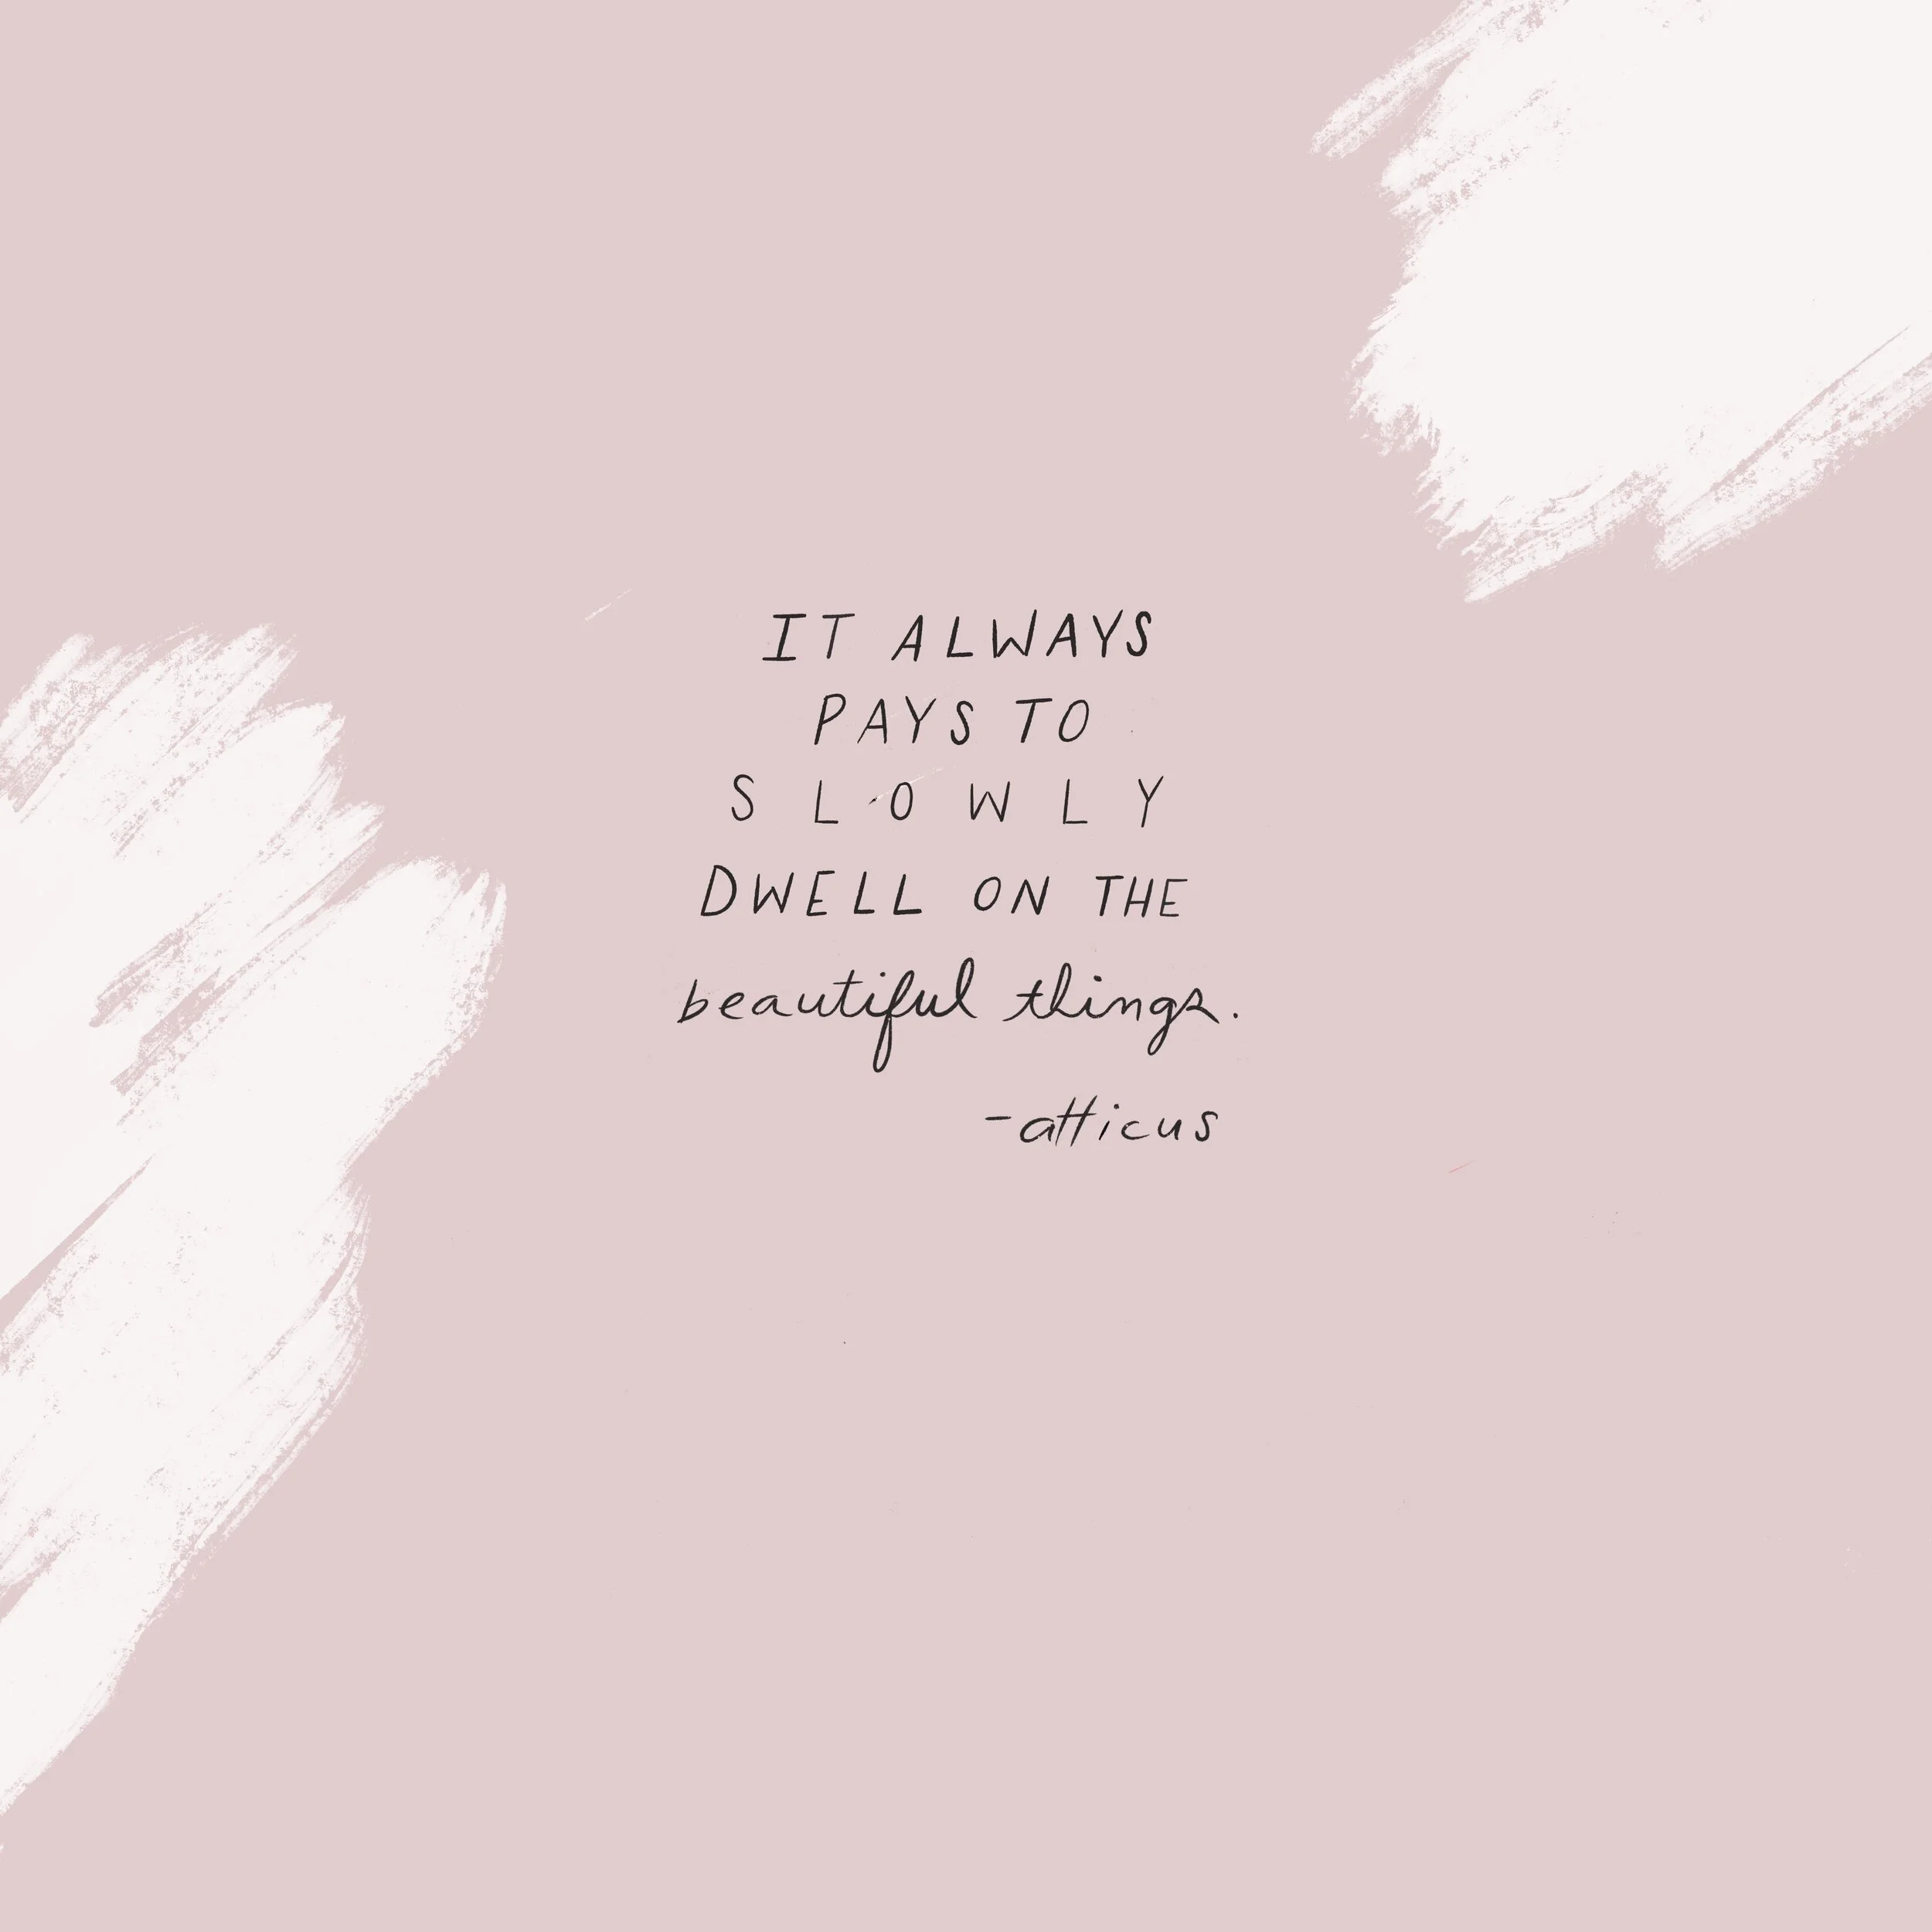 IT ALWAYS
PAYS TO
S L O W L Y
DWELL ON THE
beautiful things.
-atticus